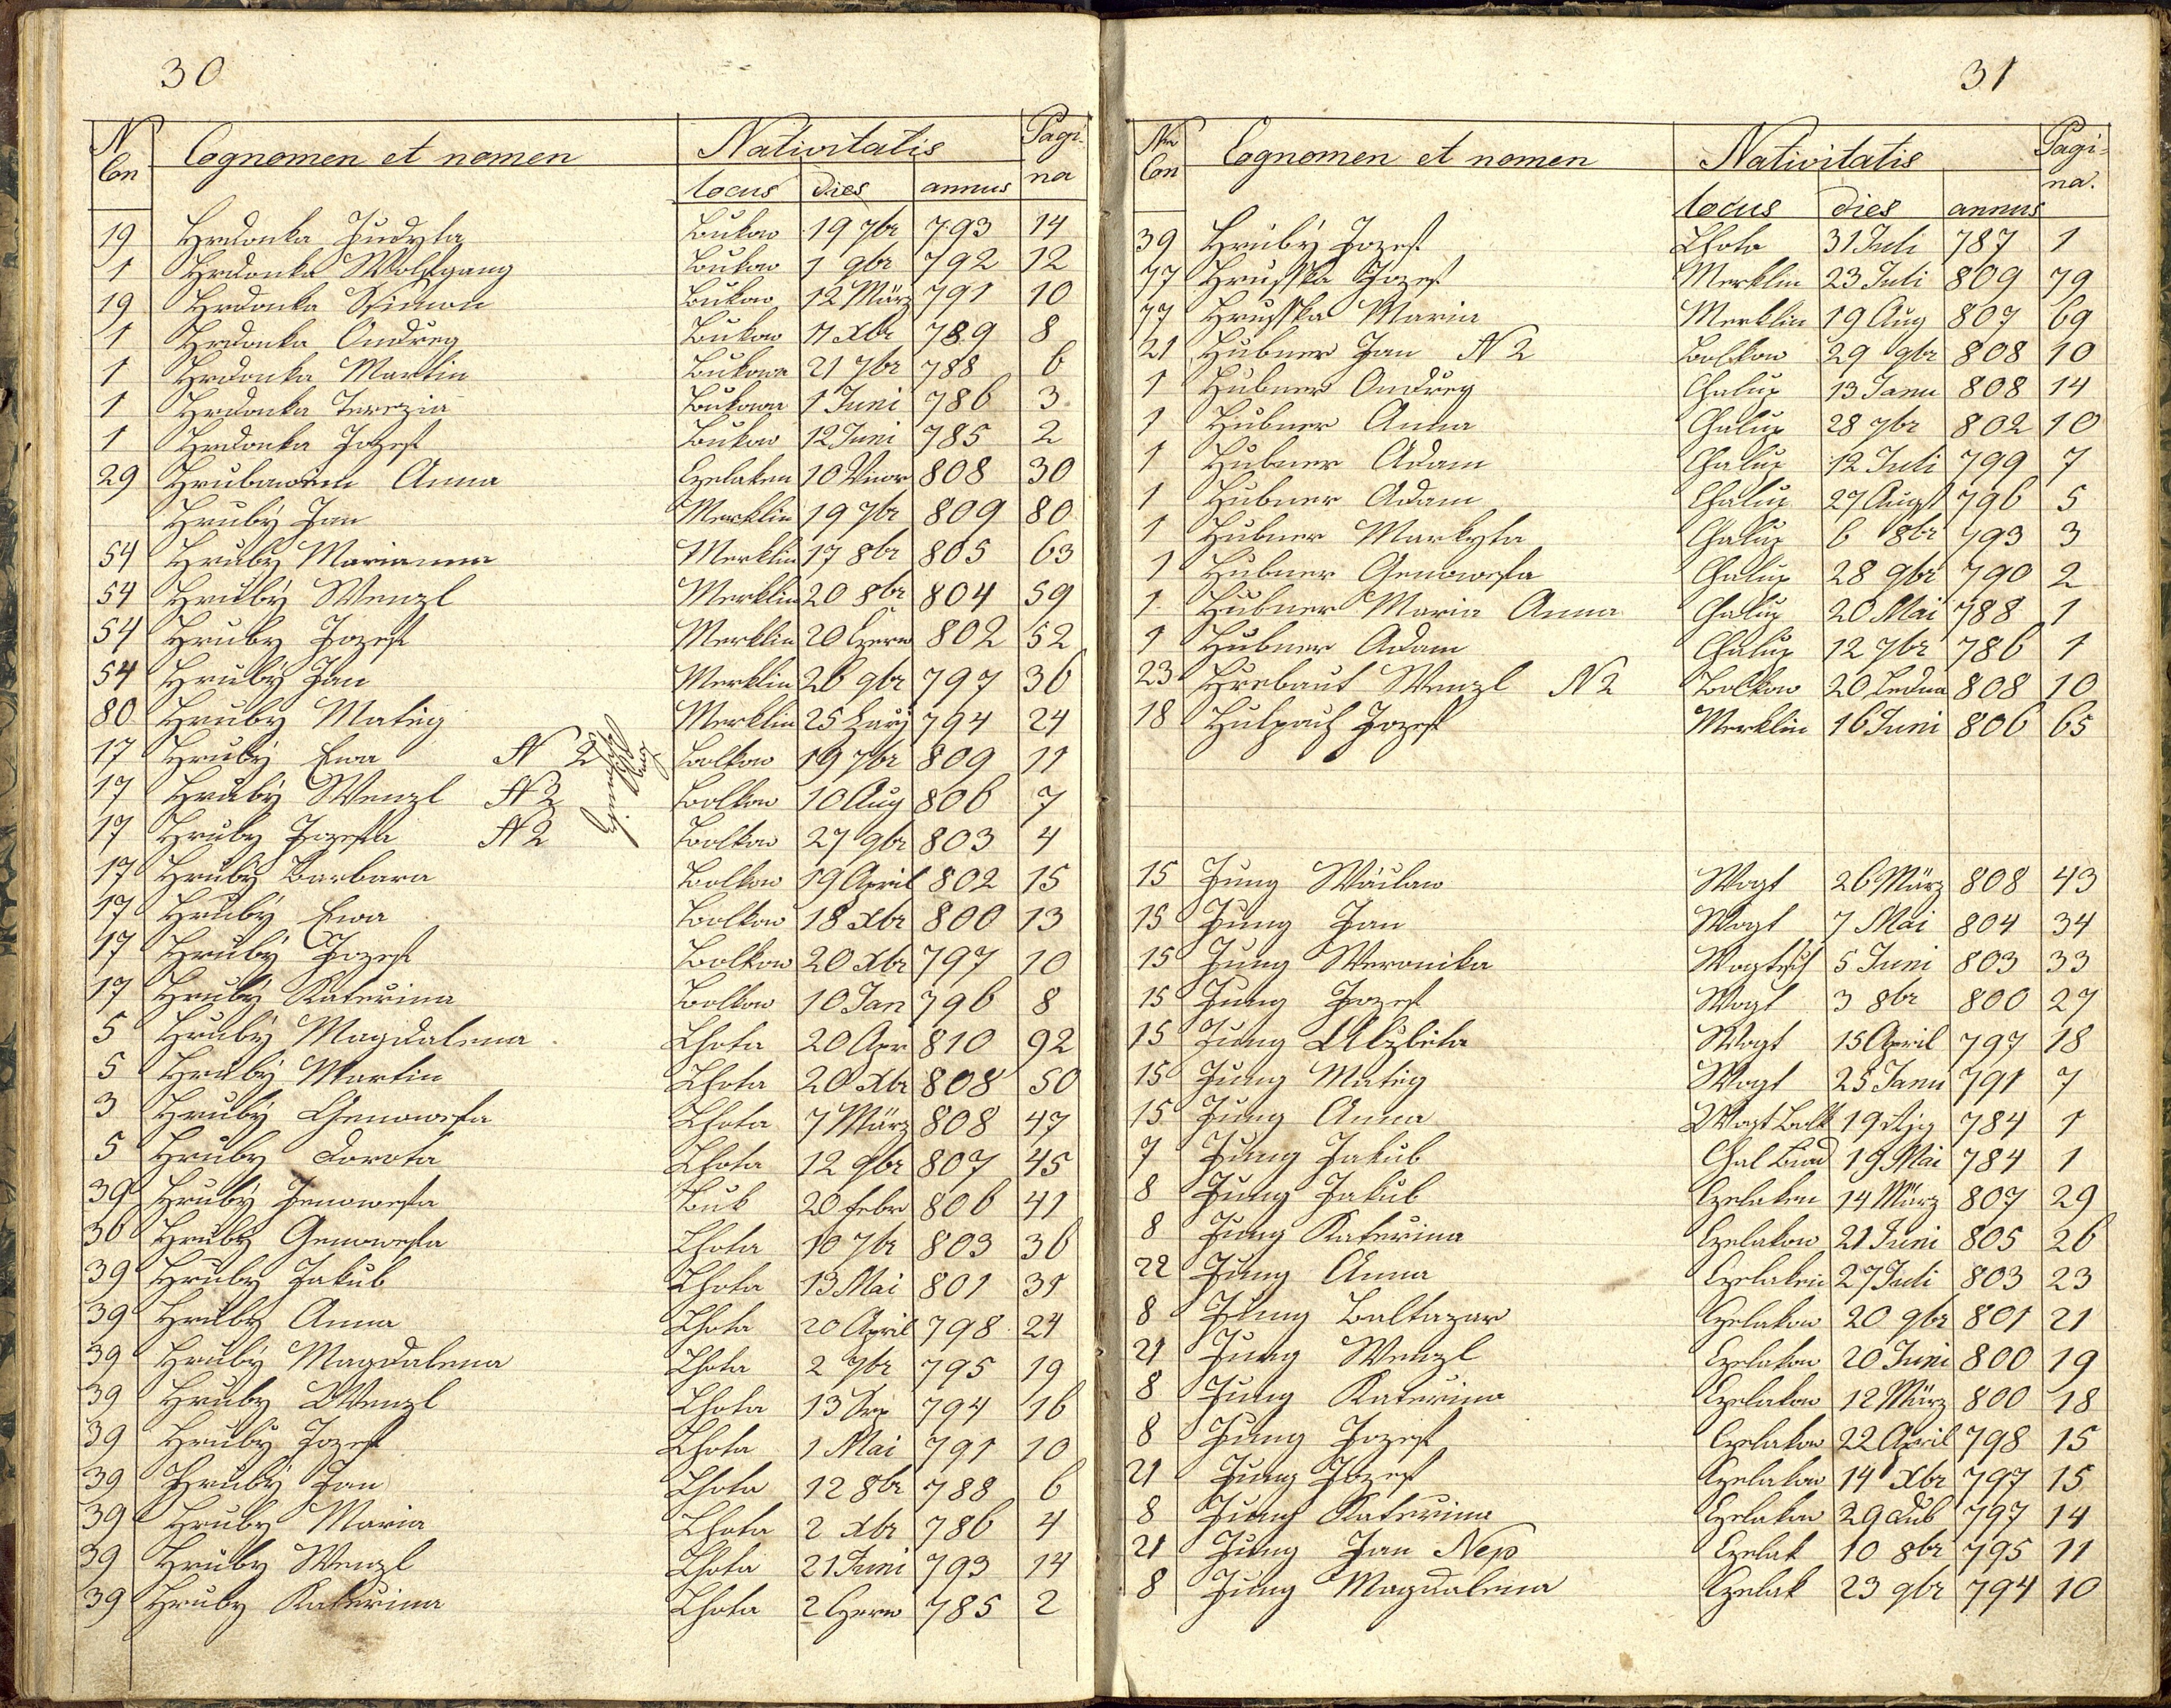 30
N Con Cognomen et nomen Nativitatis Pagi-
locus dies annus na
19 Hrdonka Judyta Bukow 19 7br 793 14
1 Hrdonka Wolfgang Bukow 1 9br 792 12
19 Hrdonka Simon Bukow 12 März 791 10
1 Hrdonka Ondreg Bukow 11 Xbr 789 8
1 Hrdonka Martin Bukowa 21 7br 788 6
1 Hrdonka Terezia Bukowa 1 Juni 786 3
1 Hrdonka Jozef Bukow 12 Juni 785 2
29 Anna Czelaken 10 808 30
Hrubý Jan Merklin 19 7br 809 80
54 Hruby Marianna Merklin 17 8br 805 63
54 Hrubý Wenzl Merklin 20 8br 804 59
54 Hruby Jozef Merklin 20 Czerw 802 52
54 Hrubý Jan Merklin 26 9br 797 36
80 Hruby Mateg Merklin 25 Zary 794 24
17 Hrubý Ewa N 2 Bolkow 19 7br 809 11
17 Hrubý Wenzl N 2 Bolkow 10 Aug 806 7
17 Hruby Jozefa N 2 Bolkow 27 9br 803 4
17 Hruby Barbara Bolkow 19 April 802 15
17 Hrubý Ewa Bolkow 18 Xbr 800 13
17 Hrubý Jozef Bolkow 20 Xbr 797 10
17 Hrubý Katerina Bolkow 10 Jan 796 8
5 Hrubý Magdalena Lhota 20 Apr 810 92
5 Hrubý Martin Lhota 20 Xbr 808 50
3 Hrubý Genowefa Lhota 7 März 808 47
5 Hruby Dorota Lhota 12 9br 807 45
39 Hruby Jenowefa Buk 20 febr 806 41
36 Hruby Genowefa Lhota 10 7br 803 36
39 Hruby Jakub Lhota 13 Mai 801 31
39 Hruby Anna Lhota 20 April 798 24
39 Hrubý Magdalena Lhota 2 7br 795 19
39 Hruby Wenzl Lhota 13 Srp 794 16
39 Hrubý Jozef Lhota 1 Mai 791 10
39 Hruby Jan Lhota 12 8br 788 6
39 Hruby Maria Lhota 2 Xbr 786 4
39 Hruby Wenzl Lhota 21 Juni 793 14
39 Hruby Katerina Lhota 2 Czerw 785 2
31
Nro Con Cognomen et nomen Nativitatis Pagi-
locus dies annus na.
39 Hrubý Jozef Lhota 31 Juli 787 1
77 Hrusska Jozef Merklin 23 Juli 809 79
77 Hrusska Maria Merklin 19 Aug 807 69
21 Hubner Jan N 2 Bolkow 29 9br 808 10
1 Hubner Ondreg Chalup 13 Janu 808 14
1 Hubner Anna Chalup 28 7br 802 10
1 Hubner Adam Chalup 12 Juli 799 7
1 Hubner Adam Chalup 27 Augst 796 5
1 Hubner Markyta Chalup 6 8br 793 3
1 Hubner Genowefa Chalup 28 9br 790 2
1 Hubner Maria Anna Chalup 20 Mai 788 1
1 Hubner Adam Chalup 12 7br 786 1
23 Hrebaut Wenzl N 2 Bolkow 20 Ledna 808 10
18 Hulpach Jozef Merklin 16 Juni 806 65
15 Jung Wáclaw Wogt 26 März 808 43
15 Jung Jan Wogt 7 Mai 804 34
15 Jung Weronika Wogtesch 5 Juni 803 33
15 Jung Jozef Wogt 3 8br 800 27
15 Jung Alzbeta Wogt 15 April 797 18
15 Jung Mateg Wogt 25 Janu 791 7
15 Jung Anna Wogt Bolk 19 Rjg 784 1
7 Jung Jakub Chal 19 Mai 784 1
8 Jung Jakub Czelaken 14 März 807 29
8 Jung Katerina Czelakow 21 Juni 805 26
22 Jung Anna Czelakein 27 Juli 803 23
8 Jung Baltazar Czelakow 20 9br 801 21
21 Jung Wenzl Czelakow 20 Juni 800 19
8 Jung Katerina Czelakow 12 März 800 18
8 Jung Jozef Czelakow 22 April 798 15
21 Jung Jozef Czelakow 14 Xbr 797 15
8 Jung Katerina Czelakow 29 Dub 797 14
21 Jung Jan Nep Czelak 10 8br 795 11
8 Jung Magdalena Czelak 23 9br 794 10